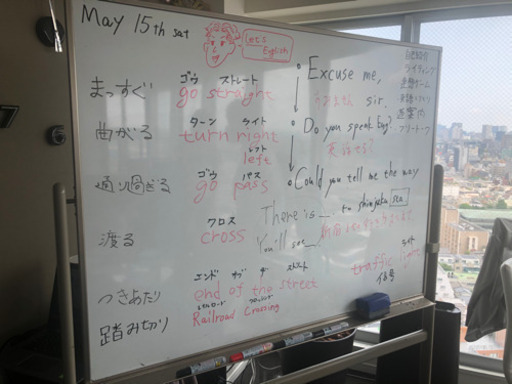 May 15th sat
Let's English
ゴウ ストレート
まっすぐ go straight
ターン ライト
曲がる turn right
レフト
left
ゴウ パス
通り過ぎる go pass
クロス
渡る cross
エンド オブ ザ ストリート
つきあたり end of the street
レイルロード クロッシング
踏み切り Railroad Crossing
Excuse me,
すみません sir.
Do you speak Eng?
英語
Could you tell me the way
to shinjuku sta
There is
You'll see
ライト
traffic light
信号
自己紹介
ライティング
連想ゲーム
道案内
フリートーク